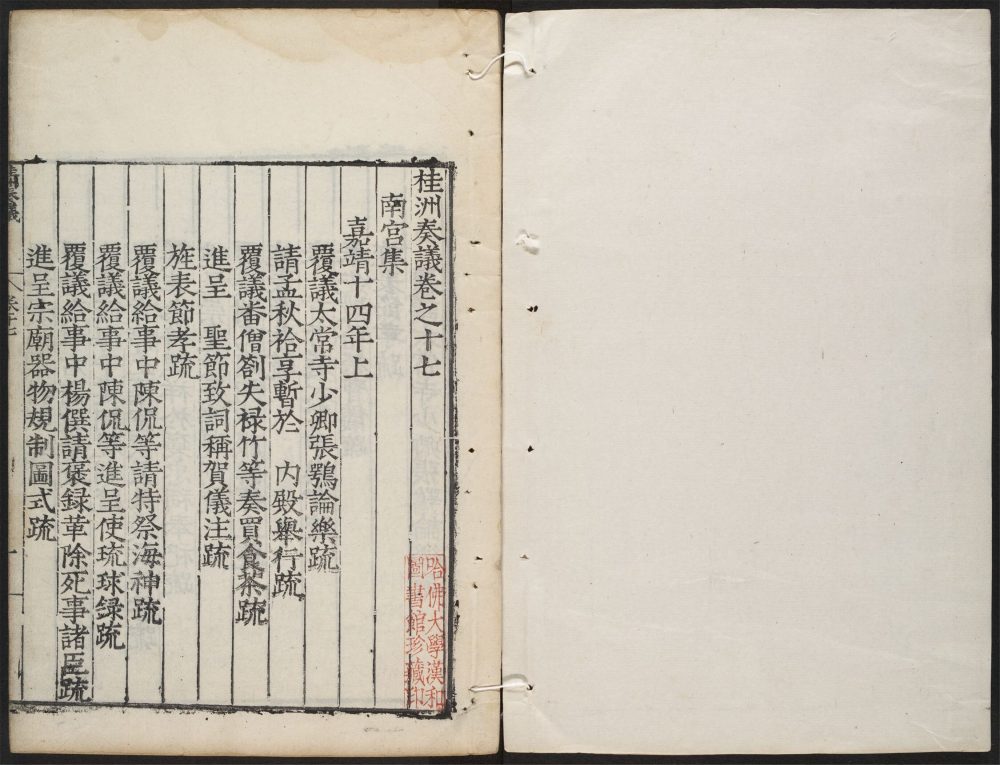 桂洲奏議卷之十七
南宫集
嘉靖十四年上
覆議太常寺少卿張鶚論樂疏
請孟秋祫享暫於　内殿舉行疏
覆議畨僧劄失禄竹等奏買食茶疏
進呈　聖節致詞稱賀儀注疏
旌表節孝疏
覆議給事中陳侃等請特祭海神疏
覆議給事中陳侃等進呈使琉球録疏
覆議給事中楊僎請褒録革除死事諸臣疏
進呈宗廟器物規制圖式疏
哈佛大學漢和
圖書館珍藏印